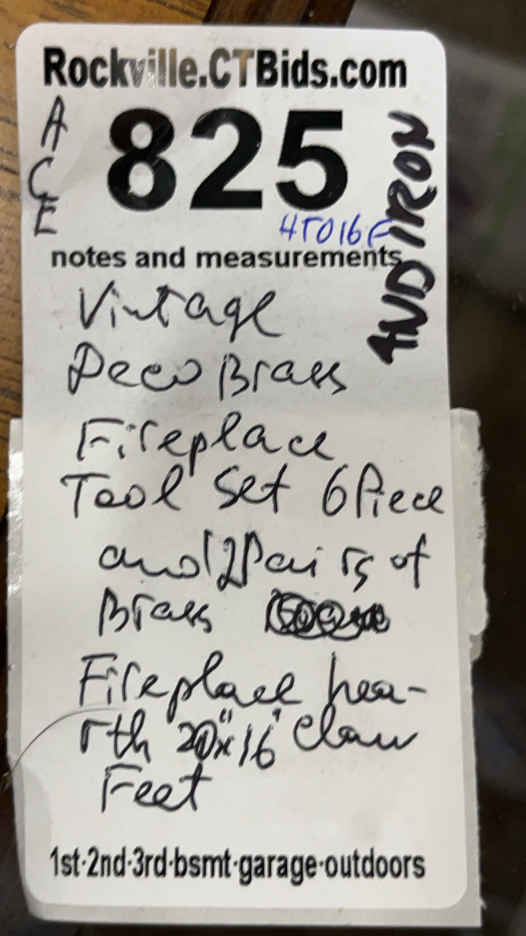 Rockville.CTBids.com
ACE
825
ANDIRON
HT016F
notes and measurements
Vintage
Deco Brass
Fireplace
Tool Set 6 Piece
and 2 Pairs of
Brass
Fireplace hea-
rth 20"x16" Claw
Feet
1st·2nd·3rd·bsmt·garage·outdoors